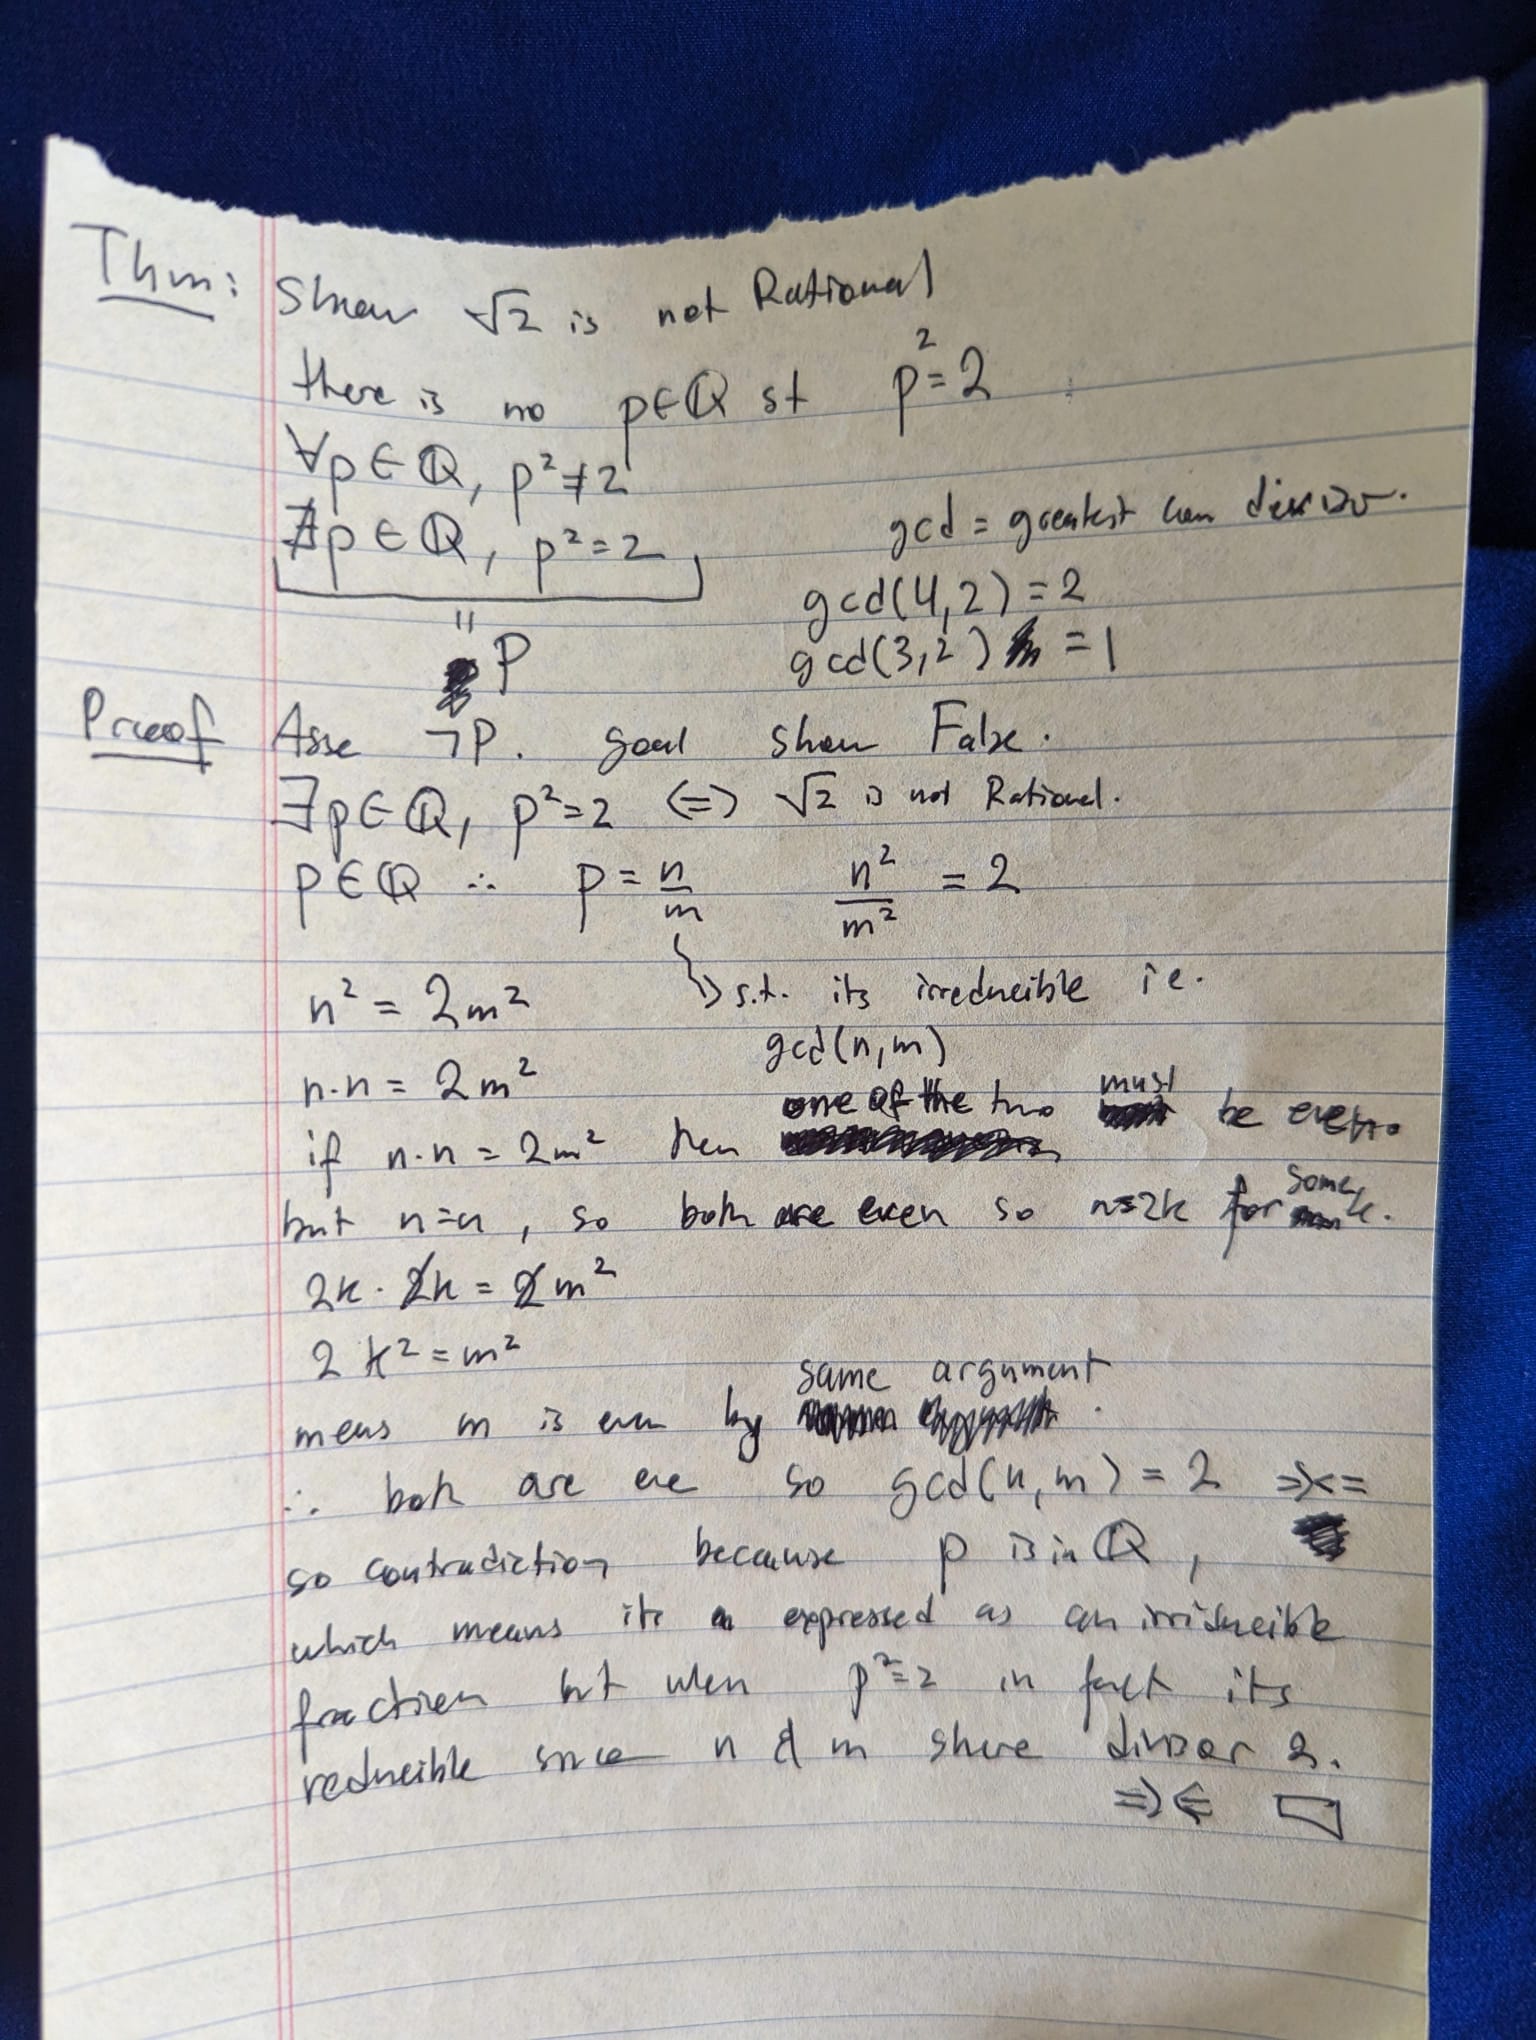 Thm: Show √2 is not Rational
there is no p∈ℚ st p²=2
∀p∈ℚ, p²≠2
∄p∈ℚ, p²=2
gcd = greatest com divisor.
gcd(4,2)=2
gcd(3,2)=1
"
P
Proof Asse ¬P. goal show False.
∃p∈ℚ, p²=2 <=> √2 is not Rational.
p∈ℚ ∴ p = n/m n²/m² = 2
n² = 2m² s.t. its irreducible ie.
gcd(n,m)
n·n = 2m²
if n·n = 2m² then one of the two must be even.
but n=n, so both are even so n=2k for some k.
2k·2k = 2m²
2k²=m²
means m is even by same argument.
∴ both are eve so gcd(n,m) = 2 =><=
so contradiction because p is in ℚ,
which means its expressed as an irriducible
fraction but when p²=2 in fact its
reducible since n & m share divisor 2.
=><= □